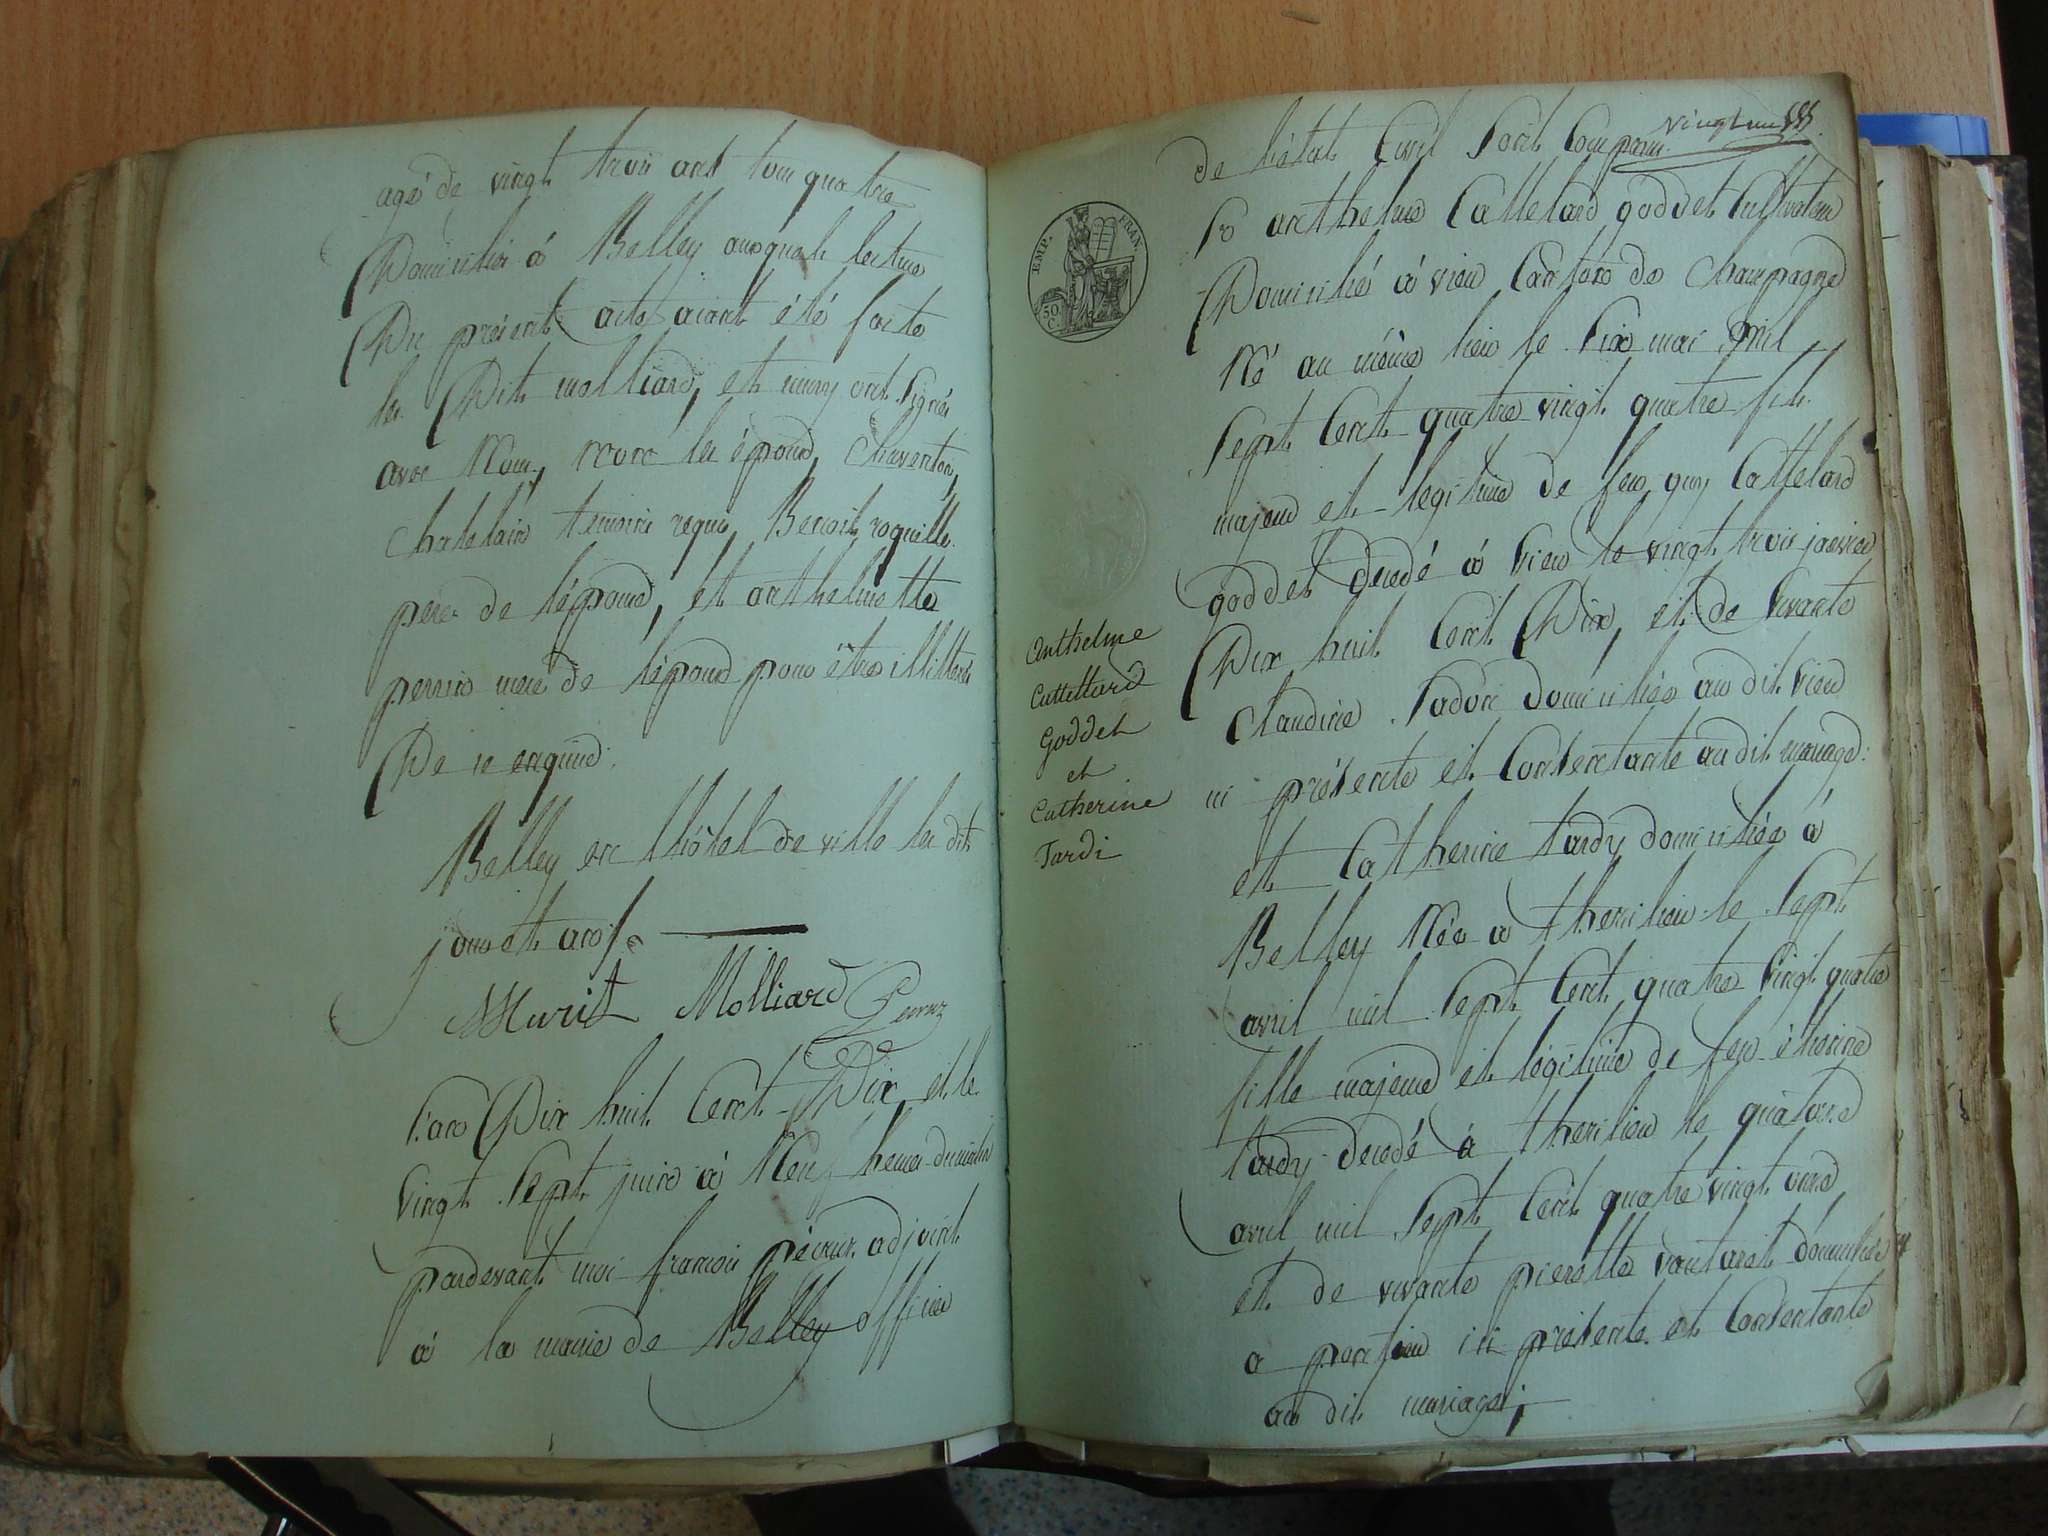 agé de vingt trois ans tous quatre
Domiciliés á Belley auxquels lecture
Du présent acte aiant été faite
les Dits molliard, et murit ont signés
avec Nous, non les époux, Chaventon,
Chatelain temoins requis, Benoit roquille
pere de l'époux, et anthelmette
perrin mere de l'épouse pour être illitterés
De ce enquis.
Belley en l'hôtel de ville les dits
jour et an /.
Murit Molliard
L'an Dix huit Cent Dix et le
vingt sept juin á Neuf heures du matin
pardevant moi françois adjoint
á la mairie de Belley officier
vingt un
de l'état Civil sont Comparus.
EMP. FRAN.
50 C.
Sr anthelme Cattelard goddet Cultivateur
Domicilié á vieu Canton de Champagne
Né au même lieu le six mai Mil
sept Cent quatre vingt quatre fils
majeur et legitime de feu guy Cattelard
goddet decedé á vieu le vingt trois janvier
Dix huit Cent Dix, et de vivante
Claudine Sadon domiciliée au dit vieu
ici présente et Consentante au dit mariage:
et Catherine tardy domiciliée á
Belley Née a therilieu le sept
avril mil sept Cent quatre vingt quatre
fille majeure et légitime de feu étienne
tardy decedé á therilieu le quatorze
avril mil sept Cent quatre vingt onze
et de vivante pierrette domiciliée
a ici présente et Consentante
au dit mariage;
Anthelme
Cattellard
Goddet
et
Catherine
Tardi